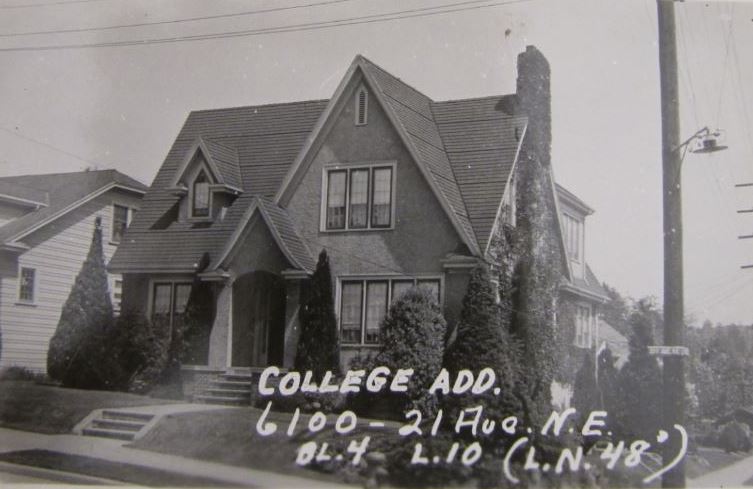 COLLEGE ADD.
6100-21 Ave. N.E.
BL.4 L.10 (L.N. 48')